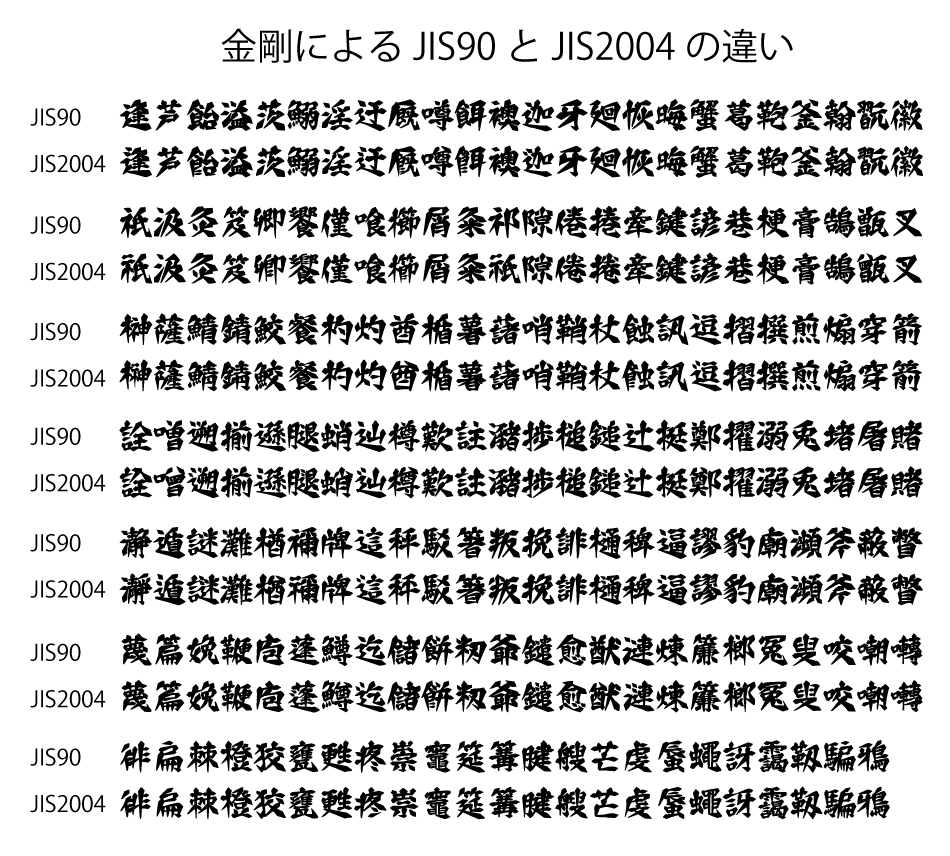 金剛による JIS90 と JIS2004 の違い
JIS90 逢芦飴溢茨鰯淫迂厩噂餌襖迦牙廻恢晦蟹葛鞄釜翰翫徽
JIS2004 逢芦飴溢茨鰯淫迂厩噂餌襖迦牙廻恢晦蟹葛鞄釜翰翫徽
JIS90 祇汲灸笈卿饗僅喰櫛屑粂祁隙倦捲牽鍵諺巷梗膏鵠甑叉
JIS2004 祇汲灸笈卿饗僅喰櫛屑粂祁隙倦捲牽鍵諺巷梗膏鵠甑叉
JIS90 榊薩鯖錆鮫餐杓灼酋楯薯藷哨鞘杖蝕訊逗摺撰煎煽穿箭
JIS2004 榊薩鯖錆鮫餐杓灼酋楯薯藷哨鞘杖蝕訊逗摺撰煎煽穿箭
JIS90 詮噌遡揃遜腿蛸辿樽歎註瀦捗槌鎚辻挺鄭擢溺兎堵屠賭
JIS2004 詮噌遡揃遜腿蛸辿樽歎註瀦捗槌鎚辻挺鄭擢溺兎堵屠賭
JIS90 瀞遁謎灘楢禰牌這秤駁箸叛挽誹樋稗逼謬豹廟瀕斧蔽瞥
JIS2004 瀞遁謎灘楢禰牌這秤駁箸叛挽誹樋稗逼謬豹廟瀕斧蔽瞥
JIS90 蔑篇娩鞭庖蓬鱒迄儲餅籾爺鑓愈猷漣煉簾榔冤叟咬嘲囀
JIS2004 蔑篇娩鞭庖蓬鱒迄儲餅籾爺鑓愈猷漣煉簾榔冤叟咬嘲囀
JIS90 徘扁棘橙狡甕甦疼祟竈筵篝腱艘芒虔蜃蠅訝靄靱騙鴉
JIS2004 徘扁棘橙狡甕甦疼祟竈筵篝腱艘芒虔蜃蠅訝靄靱騙鴉